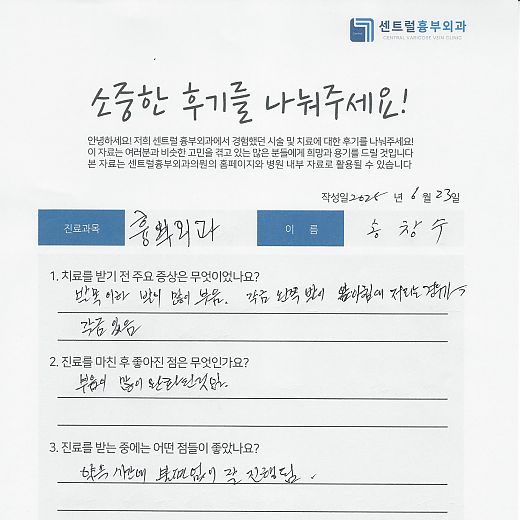 센트럴흉부외과
CENTRAL VARICOSE VEIN CLINIC
소중한 후기를 나눠주세요!
안녕하세요! 저희 센트럴 흉부외과에서 경험했던 시술 및 치료에 대한 후기를 나눠주세요!
이 자료는 여러분과 비슷한 고민을 겪고 있는 많은 분들에게 희망과 용기를 드릴 것입니다
본 자료는 센트럴흉부외과의원의 홈페이지와 병원 내부 자료로 활용될 수 있습니다
작성일 2025 년 6 월 23일
진료과목 흉부외과 이 름 송창수
1. 치료를 받기 전 주요 증상은 무엇이었나요?
발목이라 발이 많이 부음. 각금 왼쪽 발이 저리는 경우가
각금 있음
2. 진료를 마친 후 좋아진 점은 무엇인가요?
부음이 많이 완화된것같다.
3. 진료를 받는 중에는 어떤 점들이 좋았나요?
시간에 불편없이 잘 진행됨.